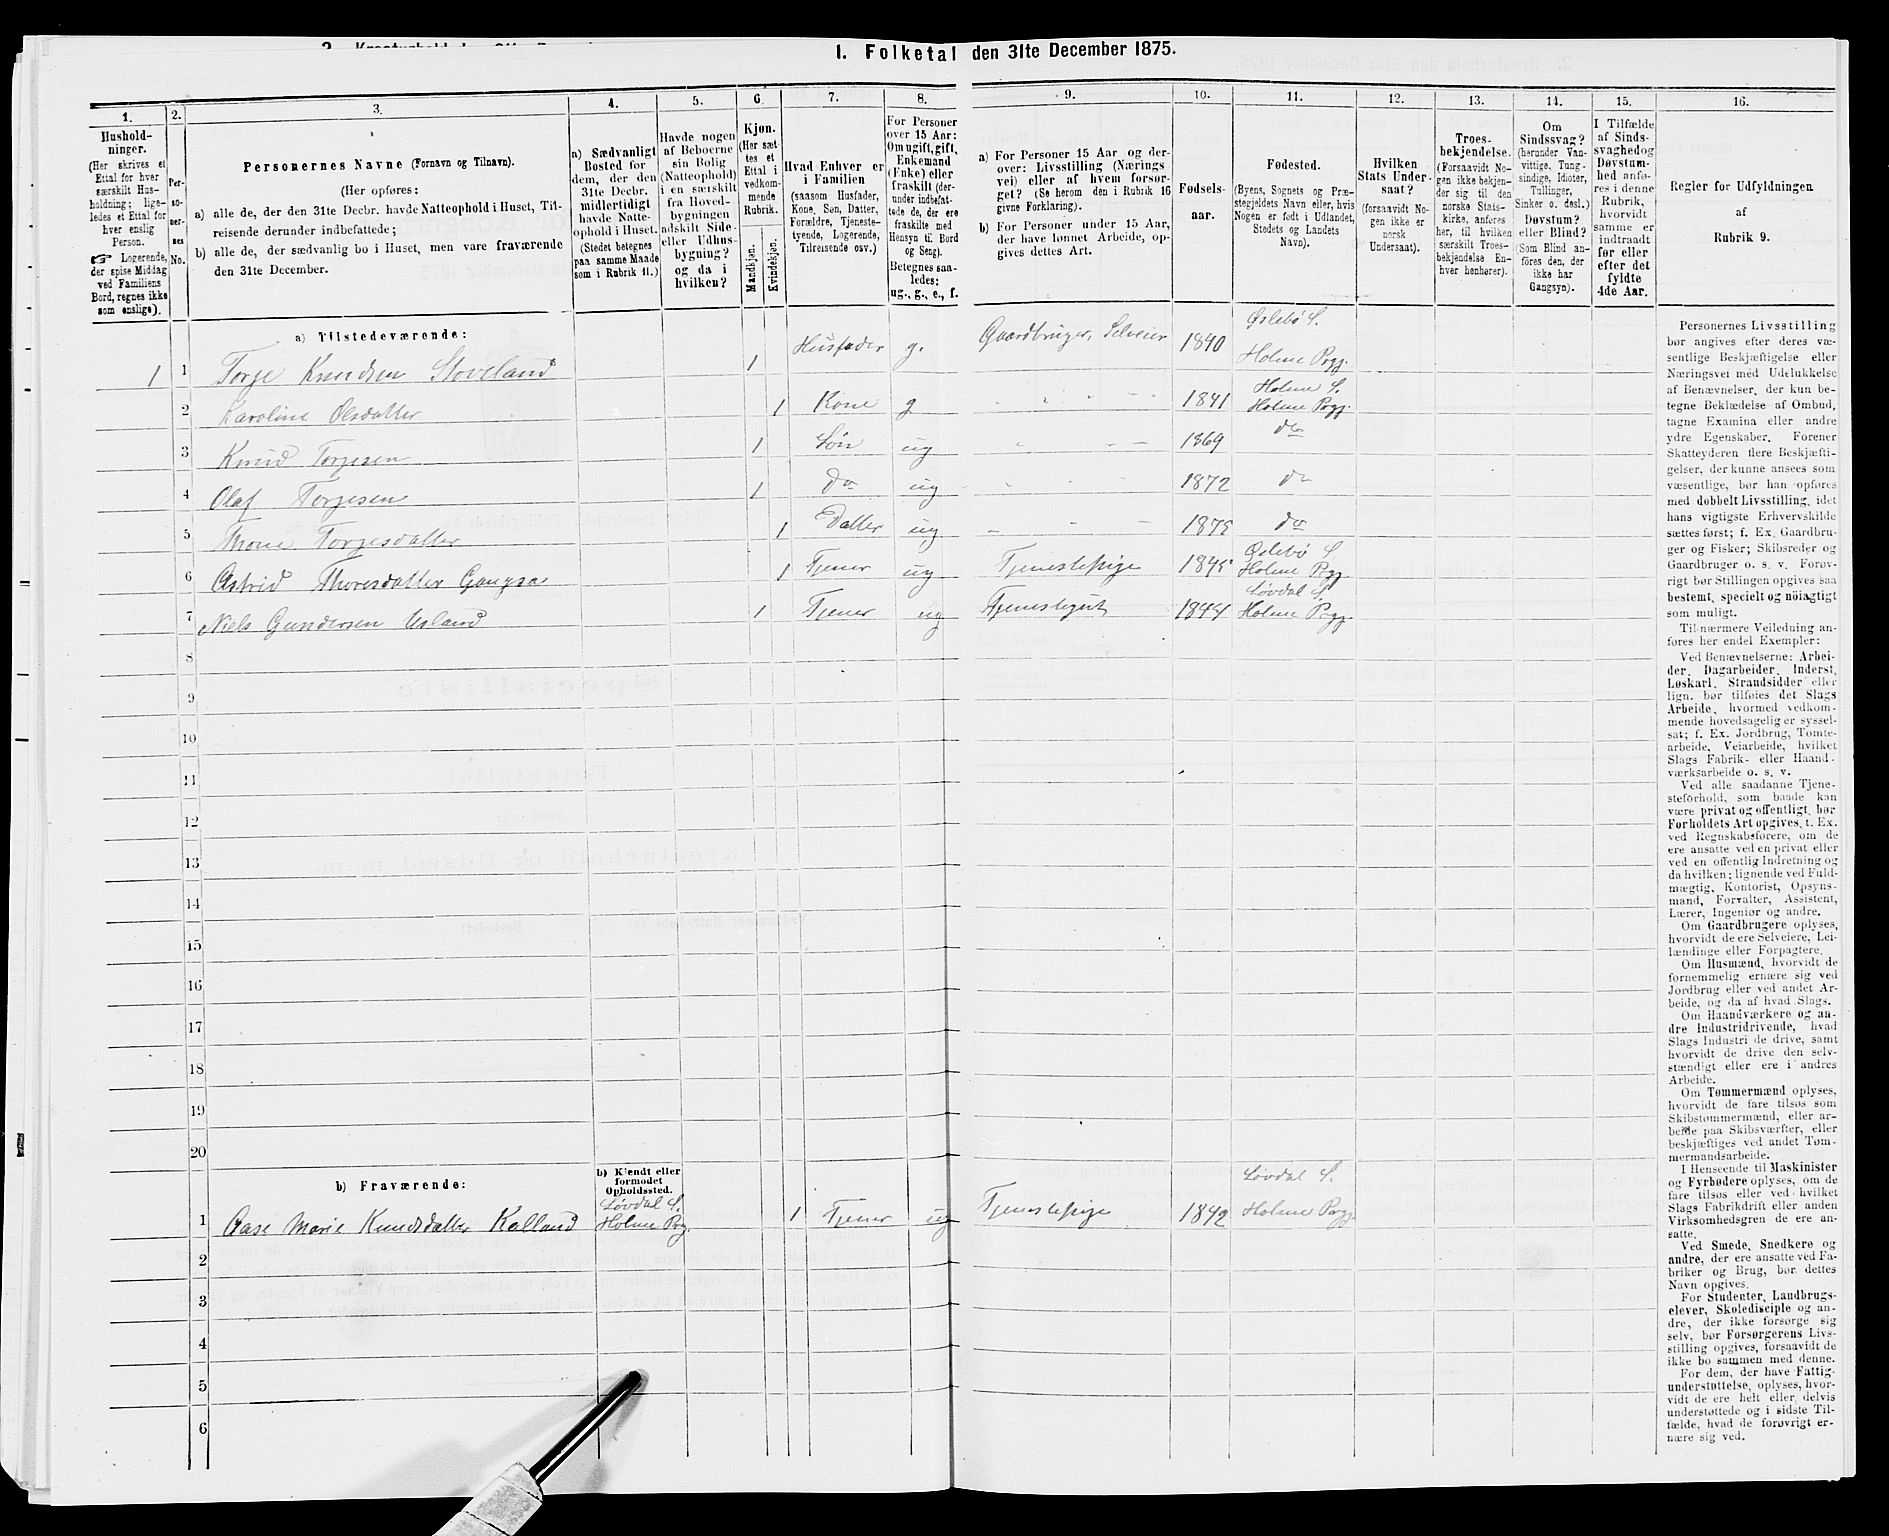 1. Folketal den 31te December 1875.
1.
Hushold-
ninger.
(Her skrives et
Ettal for hver
særskilt Hus-
holdning; lige-
ledes et Ettal for
hver enslig
Person.
☞ Logerende,
der spise Middag
ved Familiens
Bord, regnes ikke
som enslige).
2.
Per-
so-
ner-
nes
No.
3.
Personernes Navne (Fornavn og Tilnavn).
(Her opføres:
a) alle de, der den 31te Decbr. havde Natteophold i Huset, Til-
reisende derunder indbefattede;
b) alle de, der sædvanlig bo i Huset, men vare fraværende
den 31te December.
4.
a) Sædvanligt
Bosted for
dem, der den
31te Decbr.
midlertidigt
havde Natte-
ophold i Huset.
(Stedet betegnes
paa samme Maade
som i Rubrik 11.)
5.
Havde nogen
af Beboerne
sin Bolig
(Natteophold)
i en særskilt
fra Hoved-
bygningen
adskilt Side-
eller Udhus-
bygning?
og da i
hvilken?
6.
Kjøn.
(Her sæt-
tes et
Ettal i
vedkom-
mende
Rubrik.
Mandkjøn.
Kvindekjøn.
7.
Hvad Enhver er
i Familien
(saasom Husfader,
Kone, Søn, Datter,
Forældre, Tjeneste-
tyende, Logerende,
Tilreisende osv.)
8.
For Personer
over 15 Aar:
Om ugift, gift,
Enkemand
(Enke) eller
fraskilt (der-
under indbefat-
tede de, der ere
fraskilte med
Hensyn til Bord
og Seng).
Betegnes saa-
ledes:
ug., g., e., f.
9.
a) For Personer 15 Aar og der-
over: Livsstilling (Nærings-
vei) eller af hvem forsør-
get? (Se herom den i Rubrik 16
givne Forklaring).
b) For Personer under 15 Aar,
der have lønnet Arbeide, op-
gives dettes Art.
10.
Fødsels-
aar.
11.
Fødested.
(Byens, Sognets og Præ-
stegjeldets Navn eller, hvis
Nogen er født i Udlandet,
Stedets og Landets
Navn).
12.
Hvilken
Stats Under-
saat?
(forsaavidt No-
gen ikke er
norsk
Undersaat).
13.
Troes-
bekjendelse.
(Forsaavidt No-
gen ikke bekjen-
der sig til den
norske Stats-
kirke, anføres
her, til hvilken
særskilt Troes-
bekjendelse En-
hver henhører).
14.
Om
Sindssvag?
(herunder Van-
vittige, Tung-
sindige, Idioter,
Tullinger,
Sinker o. desl.)
Døvstum?
eller Blind?
(Som Blind an-
føres den, der
ikke har
Gangsyn).
15.
I Tilfælde
af Sinds-
svaghed og
Døvstum-
hed anfø-
res i denne
Rubrik,
hvorvidt
samme er
indtraadt
før eller
efter det
fyldte
4de Aar.
16.
Regler for Udfyldningen
af
Rubrik 9.
a) Tilstedeværende:
1 1 Torge Knudsen Stoveland 1 Husfader g. Gaardbruger, Selveier 1840 Øslebø S. Holme Prgj.
2 Karoline Olsdatter 1 Kone g " " " 1841 Holme S. Holme Prgj.
3 Knud Torjesen 1 Søn ug " " " 1869 do
4 Olaf Torjesen 1 do ug " " " 1872 do
5 Thone Torjesdatter 1 Datter ug " " " 1875 do
6 Astrid Thoresdatter 1 Tjener ug Tjenestepige 1845 Øslebø S. Holme Prgj.
7 Niels Gundersen 1 Tjener ug Tjenestegut Løvdal S. Holme Prgj.
8
9
10
11
12
13
14
15
16
17
18
19
20
b) Fraværende:
b) Kjendt eller
formodet
Opholdssted.
1 Aase Marie Knudsdatter Kalland Løvdal S. Holme Prg. 1 Tjener ug Tjenestepige 1842 Løvdal S. Holme Prgj.
2
3
4
5
6
Personernes Livsstilling
bør angives efter deres væ-
sentlige Beskjæftigelse eller
Næringsvei med Udelukkelse
af Benævnelser, der kun be-
tegne Beklædelse af Ombud,
tagne Examina eller andre
ydre Egenskaber. Forener
Skatteyderen flere Beskjæfti-
gelser, der kunne ansees som
væsentlige, bør han opføres
med dobbelt Livsstilling, idet
hans vigtigste Erhvervskilde
sættes først; f. Ex. Gaardbru-
ger og Fisker; Skibsreder og
Gaardbruger o. s. v. Forøv-
rigt bør Stillingen opgives saa
bestemt, specielt og nöiagtigt
som muligt.
Til nærmere Veiledning an-
føres her endel Exempler:
Ved Benævnelserne: Arbei-
der, Dagarbeider, Inderst,
Løskarl, Strandsidder eller
lign. bør tilføies det Slags
Arbeide, hvormed vedkom-
mende hovedsagelig er syssel-
sat; f. Ex. Jordbrug, Tomte-
arbeide, Veiarbeide, hvilket
Slags Fabrik- eller Haand-
værksarbeide o. s. v.
Ved alle saadanne Tjene-
steforhold, som baade kan
være privat og offentligt, bør
Forholdets Art opgives, f. Ex.
ved Regnskabsførere, om de
ere ansatte ved en privat eller
ved en offentlig Indretning og
da hvilken; lignende ved Fuld-
mægtig, Kontorist, Opsyns-
mand, Forvalter, Assistent,
Lærer, Ingeniør og andre.
Om Gaardbrugere oplyses,
hvorvidt de ere Selveiere, Lei-
lændinge eller Forpagtere.
Om Husmænd, hvorvidt de
fornemmelig ernære sig ved
Jordbrug eller ved andet Ar-
beide, og da af hvad Slags.
Om Haandværkere og an-
dre Industridrivende, hvad
Slags Industri de drive, samt
hvorvidt de drive den selv-
stændigt eller ere i andres
Arbeide.
Om Tømmermænd oplyses,
hvorvidt de fare tilsøs som
Skibstømmermænd, eller ar-
beide paa Skibsværfter, eller
beskjæftiges ved andet Tøm-
mermandsarbeide.
I Henseende til Maskinister
og Fyrbødere oplyses, om de
fare tilsøs eller ved hvilket
Slags Fabrikdrift eller anden
Virksomhedsgren de ere an-
satte.
Ved Smede, Snedkere og
andre, der ere ansatte ved Fa-
briker og Brug, bør dettes
Navn opgives.
For Studenter, Landbrugs-
elever, Skoledisciple og an-
dre, der ikke forsørge sig
selv, bør Forsørgerens Livs-
stilling opgives, forsaavidt de
ikke bo sammen med denne.
For dem, der have Fattig-
understøttelse, oplyses, hvor-
vidt de ere helt eller delvis
understøttede og i sidste Til-
fælde, hvad de forøvrigt er-
nære sig ved.